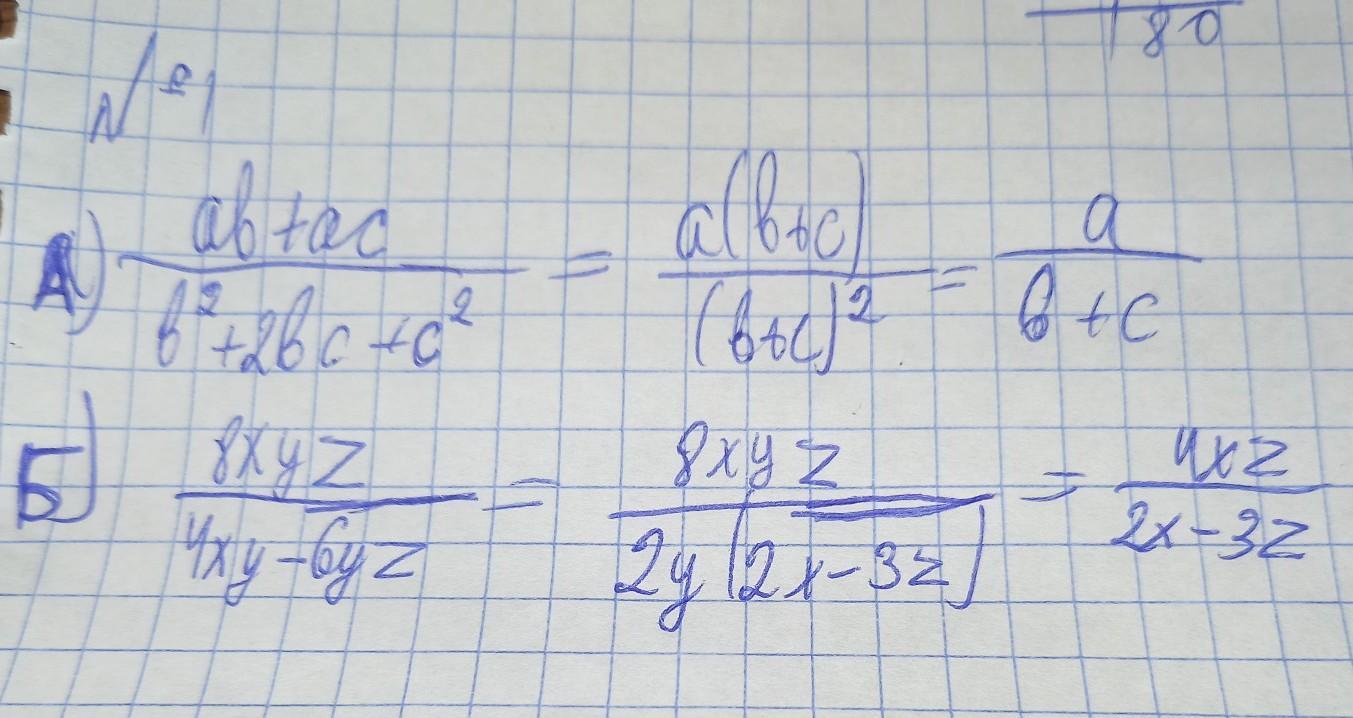 180
№1
А) (ab+ac)/(b²+2bc+c²) = a(b+c)/(b+c)² = a/(b+c)
Б) 8xyz/(4xy-6yz) = 8xyz/(2y(2x-3z)) = 4xz/(2x-3z)